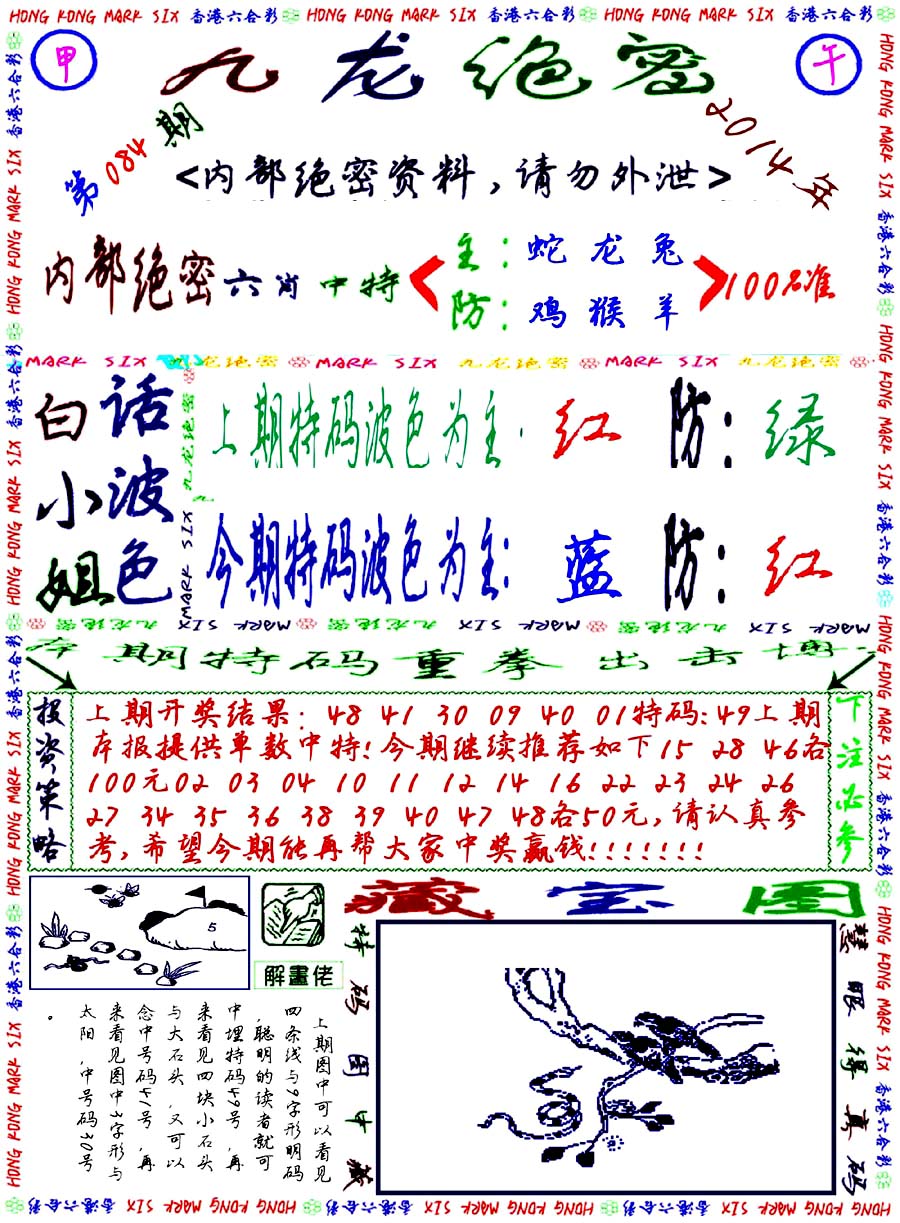 HONG KONG MARK SIX 香港六合彩 HONG KONG MARK SIX 香港六合彩 HONG KONG MARK SIX 香港六合彩
甲
九龙绝密
午
第084期
2014年
<内部绝密资料,请勿外泄>
内部绝密六肖中特
主:蛇 龙 兔
防:鸡 猴 羊
100%准
MARK SIX 九龙绝密 MARK SIX 九龙绝密 MARK SIX 九龙绝密
白小姐
话波色
上期特码波色为主·红 防:绿
今期特码波色为主:蓝 防:红
九龙绝密 MARK SIX
MARK SIX 九龙绝密 MARK SIX 九龙绝密 MARK SIX 九龙绝密
本期特码重拳出击博
投资策略
上期开奖结果:48 41 30 09 40 01特码:49上期
本报提供单数中特!今期继续推荐如下15 28 46各
100元02 03 04 10 11 12 14 16 22 23 24 26
27 34 35 36 38 39 40 47 48各50元,请认真参
考,希望今期能再帮大家中奖赢钱!!!!!!!
下注必参
5
解畫佬
藏宝图
上期图中可以看见
四条线与9字形明码
,聪明的读者就可
中埋特码49号,再
来看见四块小石头
与大石头,又可以
念中号码41号,再
来看见图中3字形与
太阳,中号码30号
。
特码图中藏
慧眼得真码
HONG KONG MARK SIX 香港六合彩 HONG KONG MARK SIX 香港六合彩 HONG KONG MARK SIX 香港六合彩